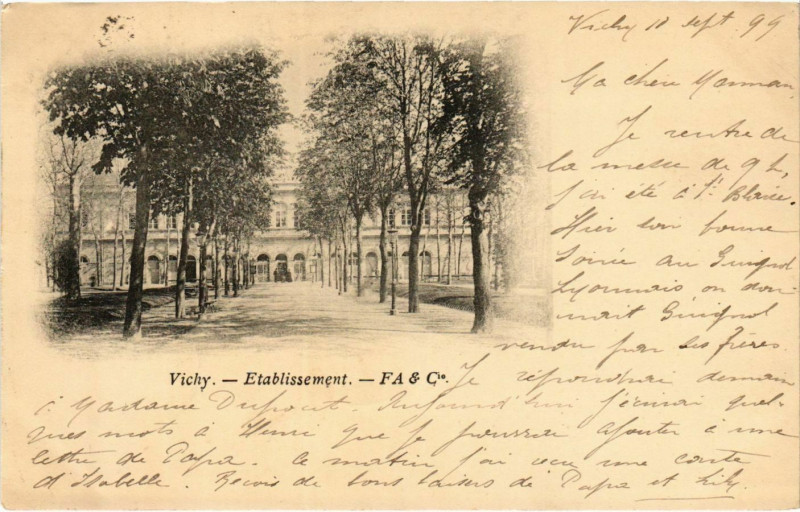 Vichy 10 sept. 99
Ma chère Maman,
Je rentre de
la messe de 9 h,
j'ai été à St Blaise.
Hier soir bonne
soirée au Guignol
Lyonnais on don-
nait Guignol
vendu par ses frères
Vichy. — Etablissement. — FA & Cie.
Je répondrai demain
à Madame Dupout. Aujourd'hui j'écrirai quel-
ques mots à Henri que je pourrai ajouter à une
lettre de Papa. Ce matin j'ai reçu une carte
d'Isabelle. Reçois de bons baisers de Papa et Lily.